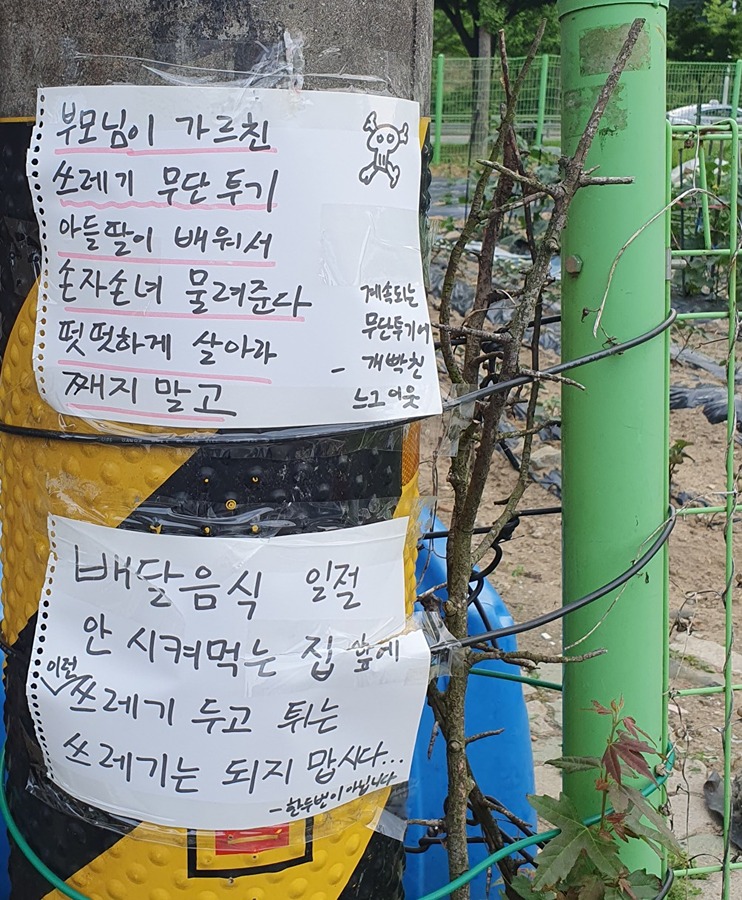 부모님이 가르친
쓰레기 무단투기
아들딸이 배워서
손자손녀 물려준다
떳떳하게 살아라
째지 말고
계속되는
무단투기에
- 개빡친
느그이웃
배달음식 일절
안 시켜먹는 집 앞에
이런
쓰레기 두고 튀는
쓰레기는 되지 맙시다...
- 한두번이 아닙니다